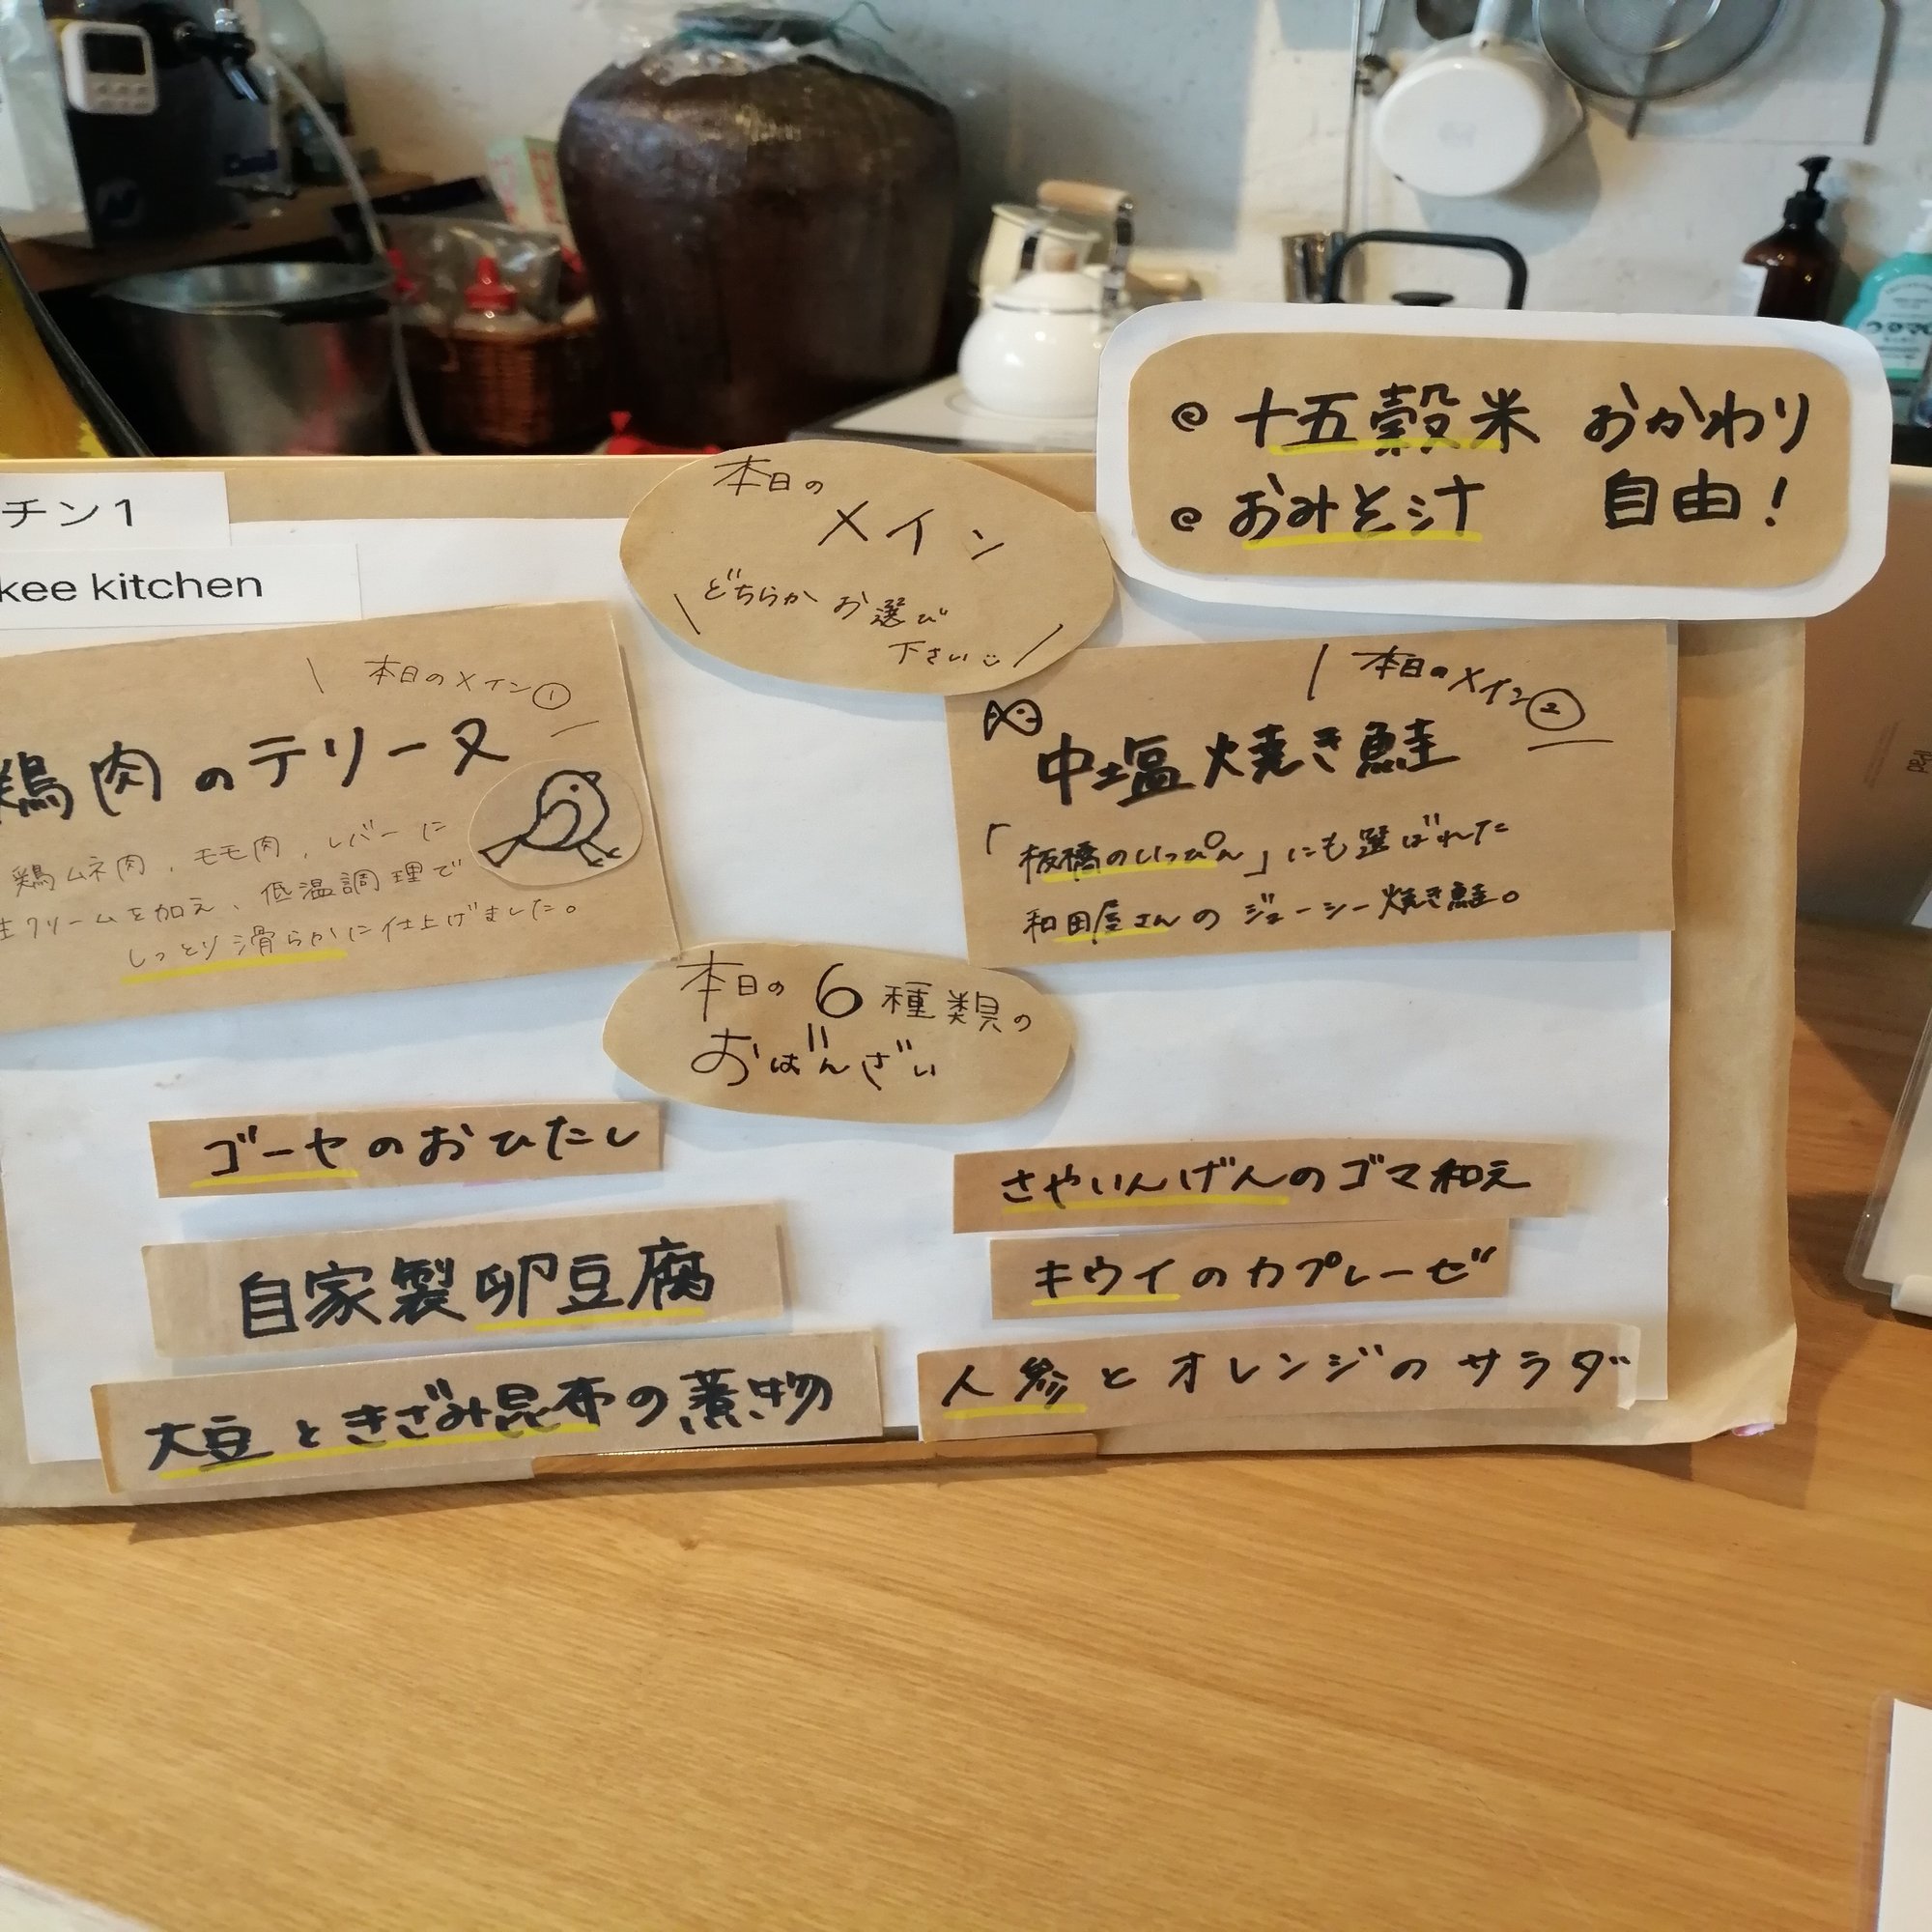 チン1
kee kitchen
本日の
メイン
どちらか お選び
下さい
◎ 十五穀米 おかわり
◎ おみそ汁 自由！
本日のメイン①
鶏肉のテリーヌ
鶏ムネ肉、モモ肉、レバーに
生クリームを加え、低温調理で
しっとり滑らかに仕上げました。
本日のメイン②
中塩焼き鮭
「板橋のいっぴん」にも選ばれた
和田屋さんの ジューシー焼き鮭。
本日の6種類の
おばんざい
ゴーヤのおひたし
自家製卵豆腐
大豆ときざみ昆布の煮物
さやいんげんのゴマ和え
キウイのカプレーゼ
人参とオレンジのサラダ